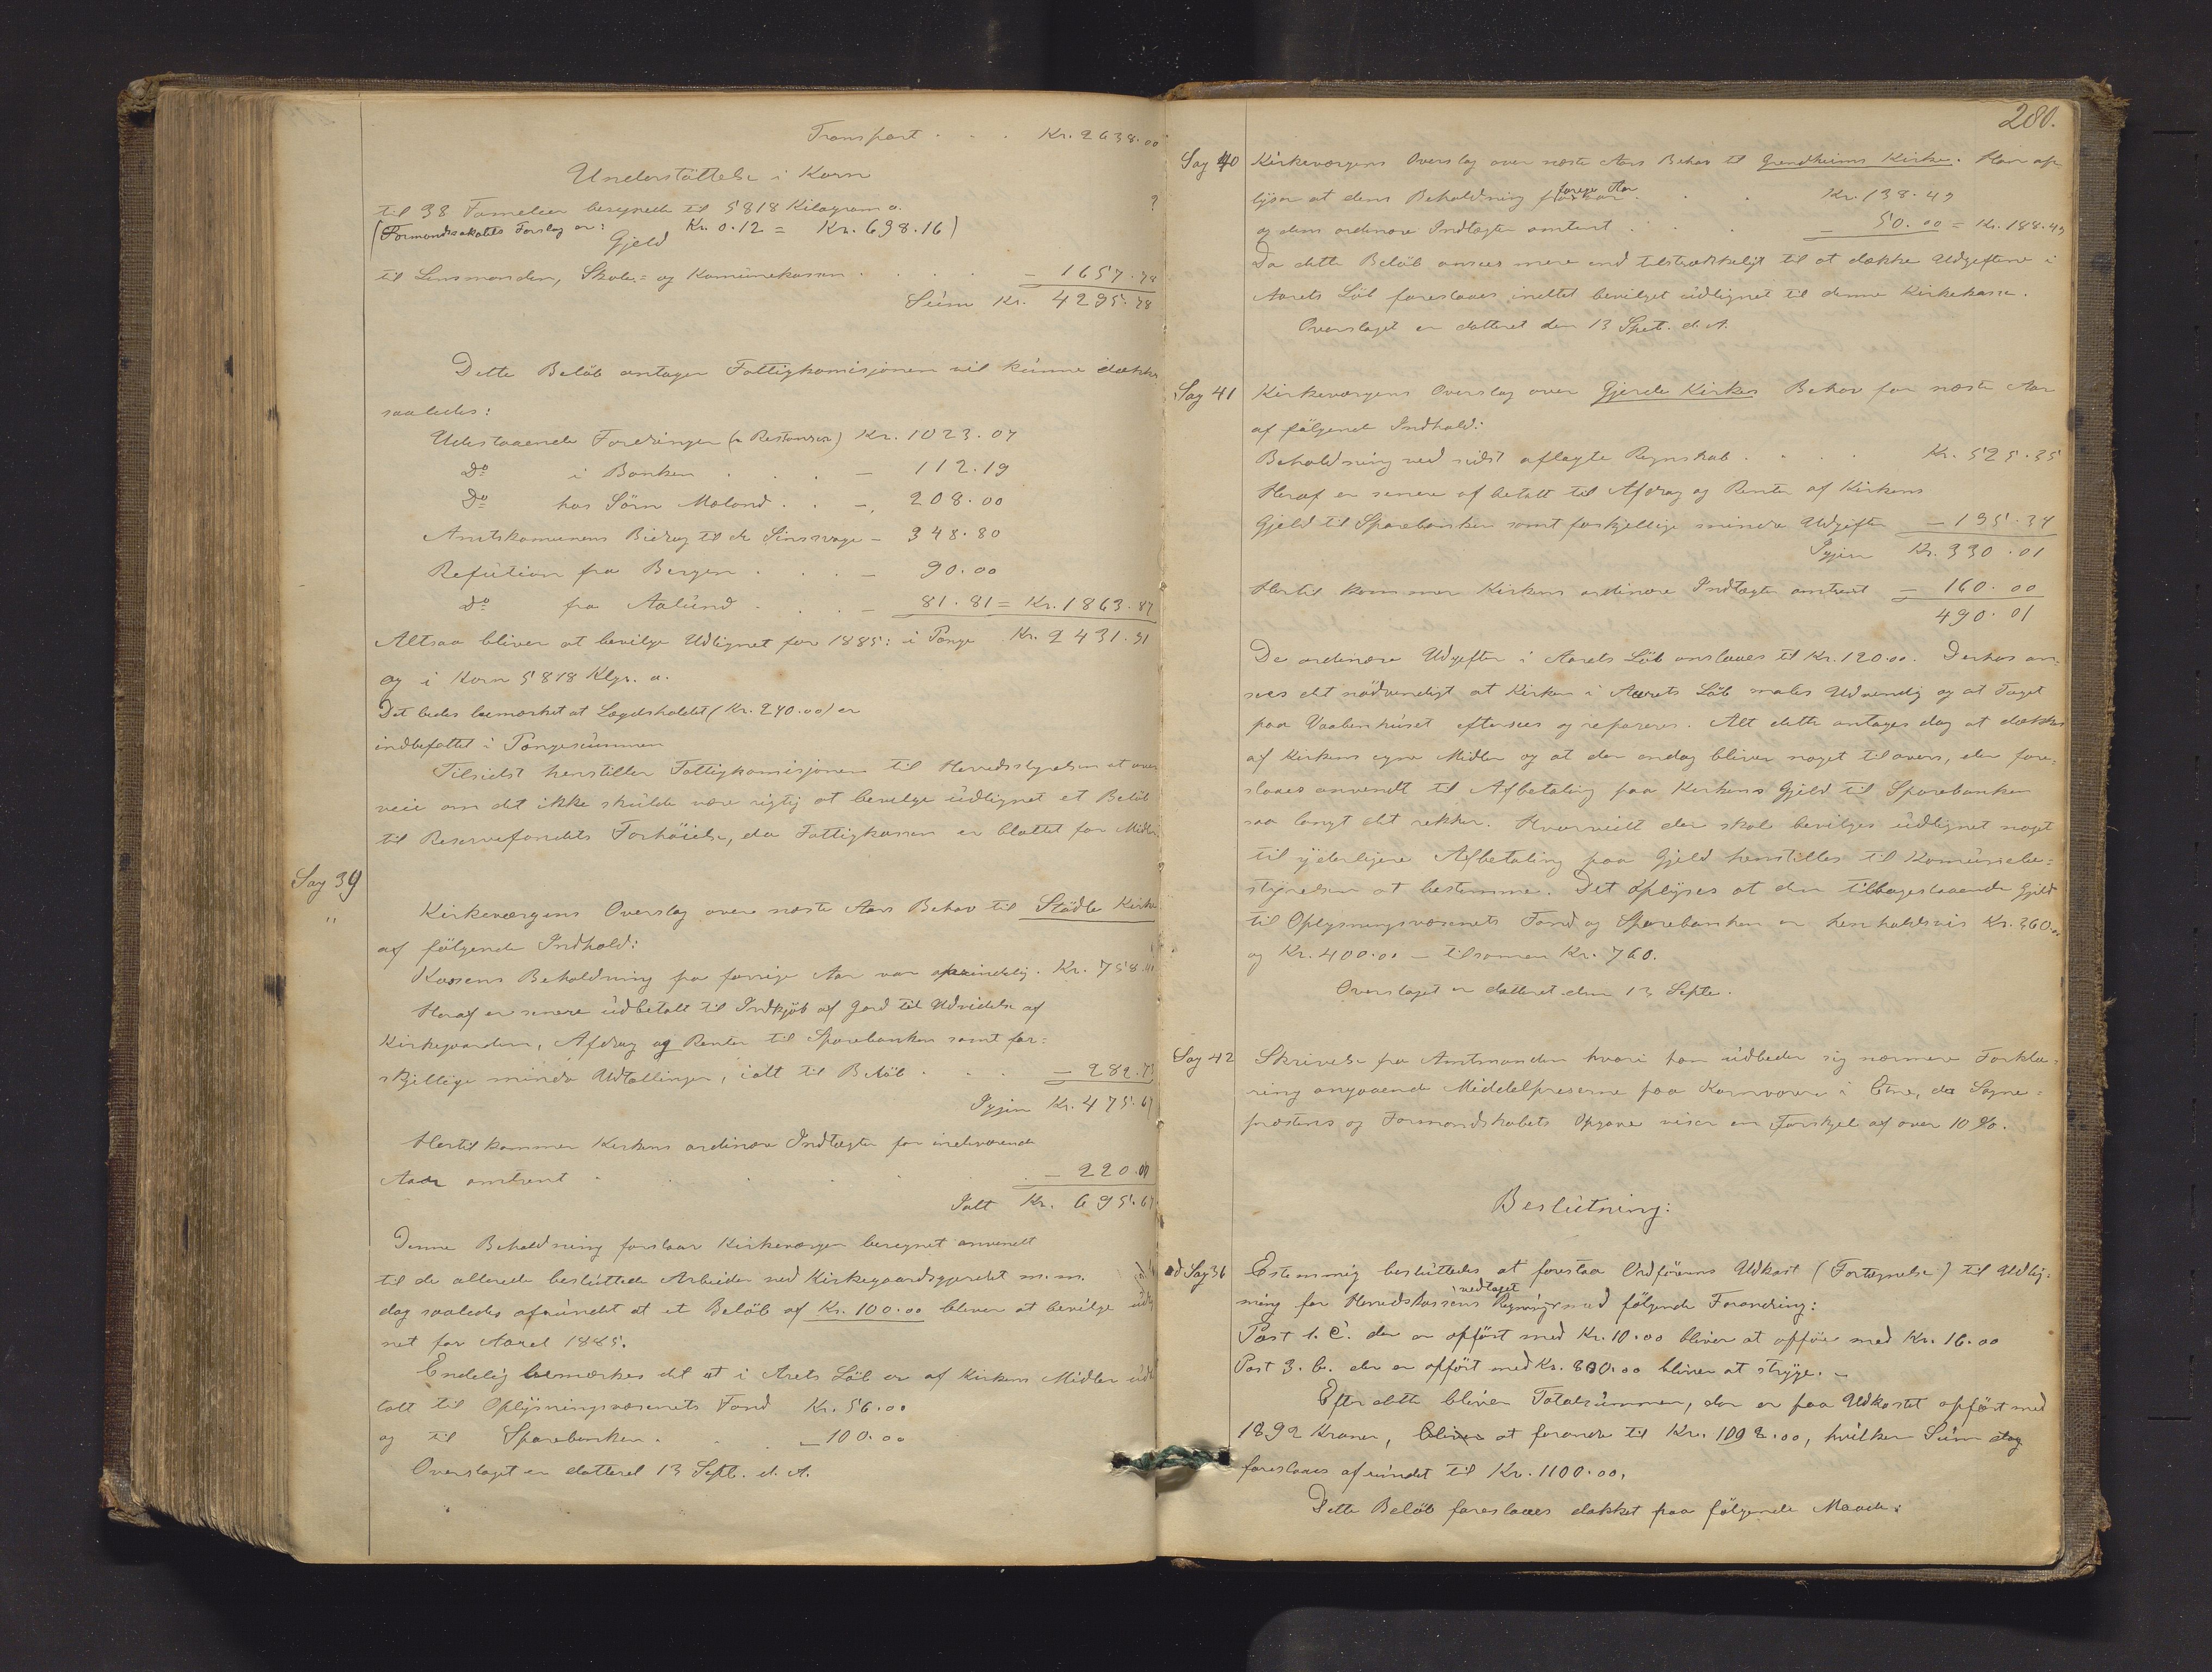 Transport . . . Kr. 2638.00
Understøttelse i Korn
til 38 Fameleer beregnede til 5818 Kilogram a.
(Formandsskabets Forslag er: Kr. 0.12 = Kr. 698.16)
Gjeld
til Lensmanden, Skole= og Komunekassen . . . . – 1657.78
Súm Kr. 4295.78
Dette Beløb antager Fattigkomisjonen vil kúnne dækkes
saaledes:
Udestaaende Fordringer (a Restanser) Kr. 1023.07
Do i Banken . . . – 112.19
Do hos Sørn Mæland . . – 208.00
Amtskomunens Bidrag til de Sinssvage – 348.80
Refútion fra Bergen . . . – 90.00
Do fra Aalúnd . . . – 81.81 = Kr. 1863.87
Altsaa bliver at bevilge Udlignet for 1885: i Penge Kr. 2431.91
og i Korn 5818 Klgr. a.
Det bedes bemærket at Lægdsholdet (Kr. 240.00) er
indbefattet i Pengesúmmen
Tilsidst henstiller Fattigkomisjonen til Herredsstyrelsen at over
veie om det ikke skúlde være rigtig at bevilge údlignet et Beløb
til Reservefondets Forhøielse, da Fattigkassen er blottet for Midler
Sag 39
"
Kirkeværgens Overslag over næste Aars Behov til Stødle Kirke
af følgende Indhold:
Kassens Beholdning fra forrige Aar var oprindelig . Kr. 758.40
Heraf er senere údbetalt til Indkjøb af Jord til Udvidelse af
Kirkegaarden, Afdrag og Renter til Sparebanken samt for=
skjellige mindre Udtællinger, ialt til Beløb . . . – 282.73
Igjen Kr. 475.67
Hertil kommer Kirkens ordinære Indtægter for indeværende
Aar omtrent . . . . . – 220.00
Ialt Kr. 695.67
Denne Beholdning forslaar Kirkeværgen beregnet anvendt
til de allerede beslúttede Arbeider ved Kirkegaardsgjerdet m.m.
dog saaledes afrúndet at et Beløb af Kr. 100.00 bliver at bevilge údlig
net for Aaret 1885.
Endelig bemærkes det at i Arets Løb er af Kirkens Midler údbe
talt til Oplysningsvæsenets Fond Kr. 56.00
og til Sparebanken . . . – 100.00
Overslaget er datteret 13 Septb. d. A.
280.
Sag 40 Kirkeværgens Overslag over næste Aars Behov til Grendheims Kirke. Han op
lyser at dens Beholdning forrige Aar var . . . Kr. 138.49
og dens ordinære Indtægter omtrent . . . – 50.00 = Kr. 188.49
Da dette Beløb ansees mere end tilstrækkeligt til at dække Udgifterne i
Aarets Løb foreslaaes indtet bevilget údlignet til denne Kirkekasse.
Overslaget er datteret den 13 Sept. d. A.
Sag 41 Kirkeværgens Overslag over Gjerde Kirkes Behov for næste Aar
af følgende Indhold:
Beholdning ved sidst aflagte Regnskab . . . . Kr. 525.35
Heraf er senere af betalt til Afdrag og Renter af Kirkens
Gjeld til Sparebanken samt forskjellige mindre Udgifter – 195.34
Igjen Kr. 330.01
Hertil kommer Kirkens ordinære Indtægter omtrent – 160.00
490.01
De ordinære Udgifter i Aarets Løb anslaaes til Kr. 120.00. Derhos an=
sees det nødvendigt at Kirken i Aarets Løb males Udvendig og at Taget
paa Vaabenhúset eftersees og repareres. Alt dette antages dog at dækkes
af Kirkens egne Midler og at der endog bliver noget tilovers, der fore=
slaaes anvendt til Afbetaling paa Kirkens Gjeld til Sparebanken
saa langt det rekker. Hvorvidt der skal bevilges údlignet noget
til yderligere Afbetaling paa Gjeld henstilles til Komúnebe=
styrelsen at bestemme. Det oplyses at den tilbagestaaende Gjeld
til Oplysningsvæsenets Fond og Sparebanken er henholdsvis Kr. 360.00
og Kr. 400.00 – tilsamen Kr. 760.
Overslaget er datteret den 13 Septe.
Sag 42 Skrivelse fra Amtmanden hvori han údbeder sig nærmere Forkla=
ring angaaende Middelpreserne paa Kornvarer i Etne, da Sogne=
præstens og Formandskabets Opgave viser en Forskjel af over 10 %.
Beslútning:
ad Sag 36 Estemmig beslúttedes at forestaa Ordførerens Udkast (Fortegnelse) til Udlig=
ning for Herredskassens Regning vedtaget med følgende Forandring:
Post 1. c. der er opført med Kr. 10.00 bliver at opføre med Kr. 16.00
Post 3. b. der er opført med Kr. 800.00 bliver at stryge. –
Efter dette bliver Totalsúmmen, der er paa Udkastet opført med
1892 Kroner, bliver at forandre til Kr. 1098.00, hvilken Súm dog
foreslaaes afrúndet til Kr. 1100.00.
Dette Beløb foreslaaes dækket paa følgende Maade: